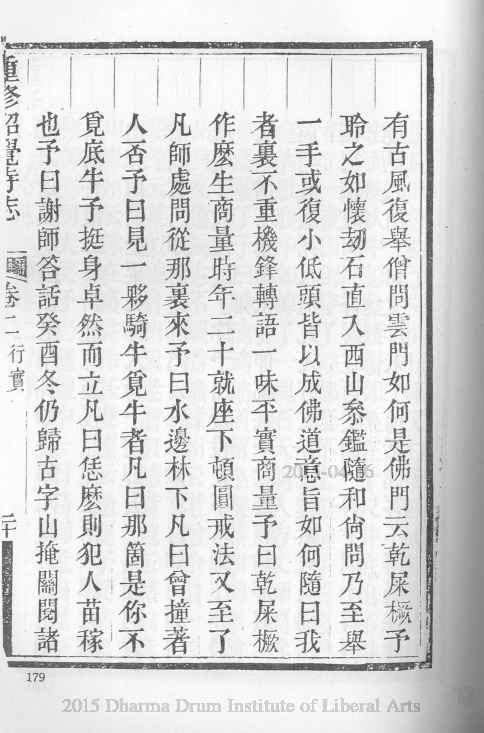 有古風復舉僧問雲門如何是佛門云乾屎橛予
聆之如懷刼石直入西山叅鑑隨和尙問乃至舉
一手或復小低頭皆以成佛道意旨如何隨曰我
者裏不重機鋒轉語一味平實商量予曰乾屎橛
作麽生商量時年二十就座下頓圓戒法又至了
凡師處問從那裏來予曰水邊林下凡曰曾撞著
人否予曰見一夥騎牛覓牛者凡曰那箇是你不
覓底牛予挺身卓然而立凡曰恁麽則犯人苗稼
也予曰謝師答話癸酉冬仍歸古字山掩關閱諸
重修昭覺寺志
卷二
行實
二十
179
2015 Dharma Drum Institute of Liberal Arts